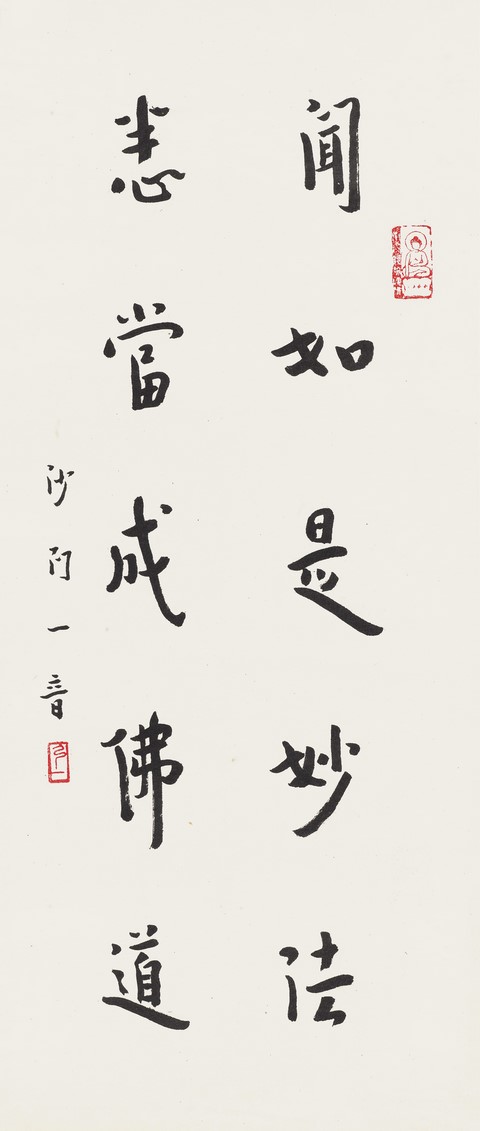 聞如是妙法
悉當成佛道
沙門一音
弘一